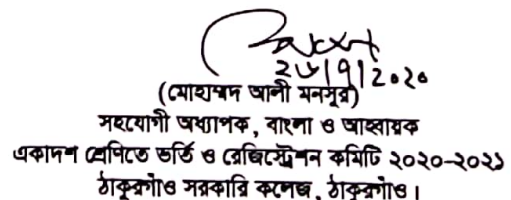 ২৮/9/2020
(মোহাম্মদ আলী মনসুর)
সহযোগী অধ্যাপক, বাংলা ও আহ্বায়ক
একাদশ শ্রেণিতে ভর্তি ও রেজিস্ট্রেশন কমিটি ২০২০-২০২১
ঠাকুরগাঁও সরকারি কলেজ, ঠাকুরগাঁও।